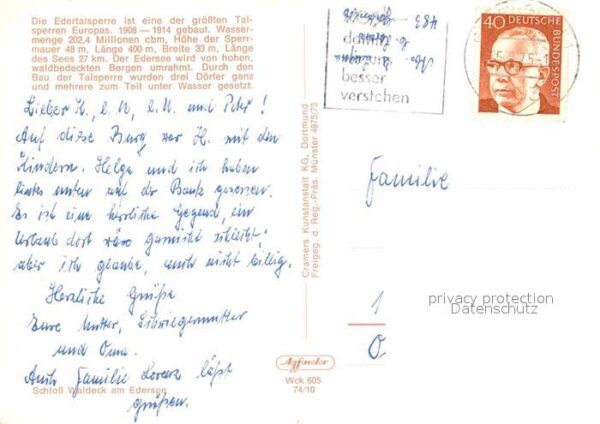 Die Edertalsperre ist eine der größten Tal-
sperren Europas. 1908—1914 gebaut. Wasser-
menge 202,4 Millionen cbm, Höhe der Sperr-
mauer 48 m, Länge 400 m, Breite 33 m, Länge
des Sees 27 km. Der Edersee wird von hohen,
waldbedeckten Bergen umrahmt. Durch den
Bau der Talsperre wurden drei Dörfer ganz
und mehrere zum Teil unter Wasser gesetzt.
Lieber H., l. U, l. U. und Peter!
Auf diese Burg war H. mit den
Kindern. Helga und ich haben
links unten auf der Bank gesessen.
Es ist eine herrliche Gegend, ein
Urlaub dort wäre garnicht schlecht,
aber ich glaube, auch nicht billig.
Herzliche Grüße
Eure Mutter, Schwiegermutter
und Oma.
Auch Familie Lorenz läßt
grüßen.
Schloß Waldeck am Edersee
Cramers Kunstanstalt KG, Dortmund
Freigeg. d. Reg.-Präs. Münster 4875/73
Agfacolor
Wck 605
74/10
485
besser
verstehen
40
DEUTSCHE
BUNDESPOST
Familie
1
O
privacy protection
Datenschutz